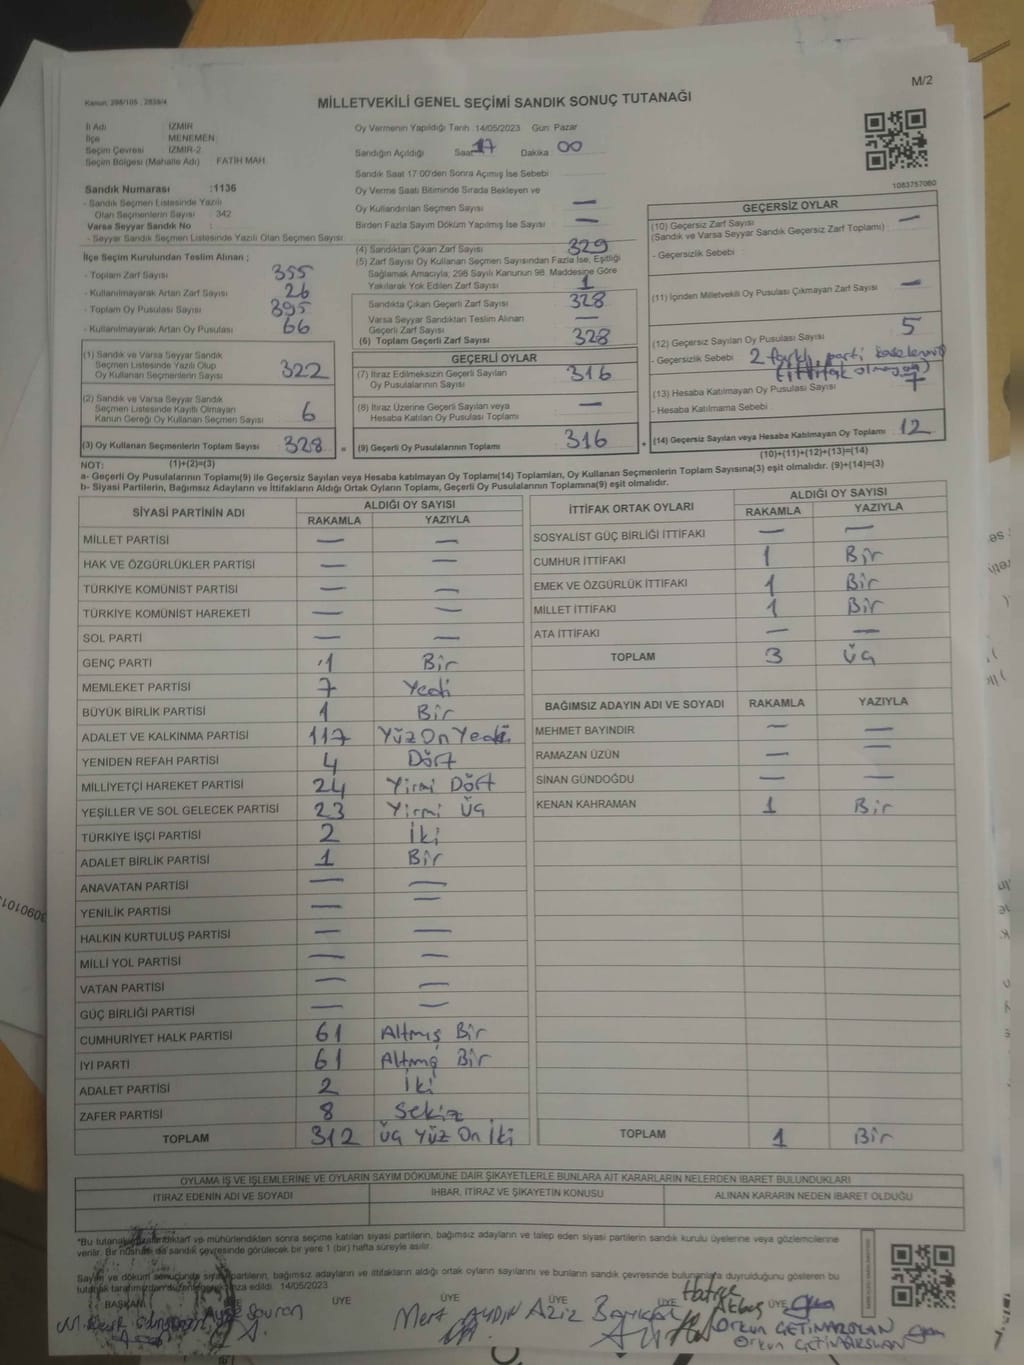 M/2
Kanun: 298/105 , 2839/4
MİLLETVEKİLİ GENEL SEÇİMİ SANDIK SONUÇ TUTANAĞI
İl Adı İZMİR
İlçe MENEMEN
Seçim Çevresi İZMİR-2
Seçim Bölgesi (Mahalle Adı) FATİH MAH.
Oy Vermenin Yapıldığı Tarih :14/05/2023 Gün: Pazar
Sandığın Açıldığı Saat 17 Dakika 00
Sandık Saat 17:00'den Sonra Açımış İse Sebebi
1083757060
Sandık Numarası :1136
- Sandık Seçmen Listesinde Yazılı
Olan Seçmenlerin Sayısı : 342
Varsa Seyyar Sandık No :
- Seyyar Sandık Seçmen Listesinde Yazılı Olan Seçmen Sayısı:
Oy Verme Saati Bitiminde Sırada Bekleyen ve
Oy Kullandırılan Seçmen Sayısı —
Birden Fazla Sayım Döküm Yapılmış İse Sayısı —
İlçe Seçim Kurulundan Teslim Alınan ;
- Toplam Zarf Sayısı 355
- Kullanılmayarak Artan Zarf Sayısı 26
- Toplam Oy Pusulası Sayısı 395
- Kullanılmayarak Artan Oy Pusulası 66
(1) Sandık ve Varsa Seyyar Sandık
Seçmen Listesinde Yazılı Olup
Oy Kullanan Seçmenlerin Sayısı 322
(2) Sandık ve Varsa Seyyar Sandık
Seçmen Listesinde Kayıtlı Olmayan
Kanun Gereği Oy Kullanan Seçmen Sayısı 6
(3) Oy Kullanan Seçmenlerin Toplam Sayısı 328 =
(4) Sandıktan Çıkan Zarf Sayısı 329
(5) Zarf Sayısı Oy Kullanan Seçmen Sayısından Fazla İse, Eşitliği
Sağlamak Amacıyla; 298 Sayılı Kanunun 98. Maddesine Göre
Yakılarak Yok Edilen Zarf Sayısı 1
Sandıkta Çıkan Geçerli Zarf Sayısı 328
Varsa Seyyar Sandıktan Teslim Alınan
Geçerli Zarf Sayısı —
(6) Toplam Geçerli Zarf Sayısı 328
GEÇERLİ OYLAR
(7) İtiraz Edilmeksizin Geçerli Sayılan
Oy Pusulalarının Sayısı 316
(8) İtiraz Üzerine Geçerli Sayılan veya
Hesaba Katılan Oy Pusulası Toplamı —
(9) Geçerli Oy Pusulalarının Toplamı 316 +
GEÇERSİZ OYLAR
(10) Geçersiz Zarf Sayısı —
(Sandık ve Varsa Seyyar Sandık Geçersiz Zarf Toplamı) :
- Geçersizlik Sebebi :
(11) İçinden Milletvekili Oy Pusulası Çıkmayan Zarf Sayısı —
(12) Geçersiz Sayılan Oy Pusulası Sayısı 5
- Geçersizlik Sebebi 2 farklı parti
(ittifak olmayan)
(13) Hesaba Katılmayan Oy Pusulası Sayısı 7
- Hesaba Katılmama Sebebi
(14) Geçersiz Sayılan veya Hesaba Katılmayan Oy Toplamı 12
NOT: (1)+(2)=(3)
(10)+(11)+(12)+(13)=(14)
a- Geçerli Oy Pusulalarının Toplamı(9) ile Geçersiz Sayılan veya Hesaba katılmayan Oy Toplamı(14) Toplamları, Oy Kullanan Seçmenlerin Toplam Sayısına(3) eşit olmalıdır. (9)+(14)=(3)
b- Siyasi Partilerin, Bağımsız Adayların ve İttifakların Aldığı Ortak Oyların Toplamı, Geçerli Oy Pusulalarının Toplamına(9) eşit olmalıdır.
SİYASİ PARTİNİN ADI ALDIĞI OY SAYISI
RAKAMLA YAZIYLA
MİLLET PARTİSİ — —
HAK VE ÖZGÜRLÜKLER PARTİSİ — —
TÜRKİYE KOMÜNİST PARTİSİ — —
TÜRKİYE KOMÜNİST HAREKETİ — —
SOL PARTİ — —
GENÇ PARTİ 1 Bir
MEMLEKET PARTİSİ 7 Yedi
BÜYÜK BİRLİK PARTİSİ 1 Bir
ADALET VE KALKINMA PARTİSİ 117 Yüz On Yedi
YENİDEN REFAH PARTİSİ 4 Dört
MİLLİYETÇİ HAREKET PARTİSİ 24 Yirmi Dört
YEŞİLLER VE SOL GELECEK PARTİSİ 23 Yirmi Üç
TÜRKİYE İŞÇİ PARTİSİ 2 İki
ADALET BİRLİK PARTİSİ 1 Bir
ANAVATAN PARTİSİ — —
YENİLİK PARTİSİ — —
HALKIN KURTULUŞ PARTİSİ — —
MİLLİ YOL PARTİSİ — —
VATAN PARTİSİ — —
GÜÇ BİRLİĞİ PARTİSİ — —
CUMHURİYET HALK PARTİSİ 61 Altmış Bir
İYİ PARTİ 61 Altmış Bir
ADALET PARTİSİ 2 İki
ZAFER PARTİSİ 8 Sekiz
TOPLAM 312 Üç Yüz On İki
İTTİFAK ORTAK OYLARI ALDIĞI OY SAYISI
RAKAMLA YAZIYLA
SOSYALİST GÜÇ BİRLİĞİ İTTİFAKI — —
CUMHUR İTTİFAKI 1 Bir
EMEK VE ÖZGÜRLÜK İTTİFAKI 1 Bir
MİLLET İTTİFAKI 1 Bir
ATA İTTİFAKI — —
TOPLAM 3 Üç
BAĞIMSIZ ADAYIN ADI VE SOYADI RAKAMLA YAZIYLA
MEHMET BAYINDIR — —
RAMAZAN ÜZÜN — —
SİNAN GÜNDOĞDU — —
KENAN KAHRAMAN 1 Bir
TOPLAM 1 Bir
OYLAMA İŞ VE İŞLEMLERİNE VE OYLARIN SAYIM DÖKÜMÜNE DAİR ŞİKAYETLERLE BUNLARA AİT KARARLARIN NELERDEN İBARET BULUNDUKLARI
İTİRAZ EDENİN ADI VE SOYADI İHBAR, İTİRAZ VE ŞİKAYETİN KONUSU ALINAN KARARIN NEDEN İBARET OLDUĞU
*Bu tutanak ve mühürlendikten sonra seçime katılan siyasi partilerin, bağımsız adayların ve talep eden siyasi partilerin sandık kurulu üyelerine veya gözlemcilerine
verilir. Bir nüshası da sandık çevresinde görülecek bir yere 1 (bir) hafta süreyle asılır.
Sayım ve döküm sonucunda siyasi partilerin, bağımsız adayların ve ittifakların aldığı ortak oyların sayılarını ve bunların sandık çevresinde bulunanlara duyrulduğunu gösteren bu
tutanak tarafımızdan imza edildi. 14/05/2023
BAŞKAN ÜYE ÜYE ÜYE ÜYE
Mert AYDIN Aziz Hatice Akbaş
Orkun GETİNARSLAN
Orkun GETİNARSLAN